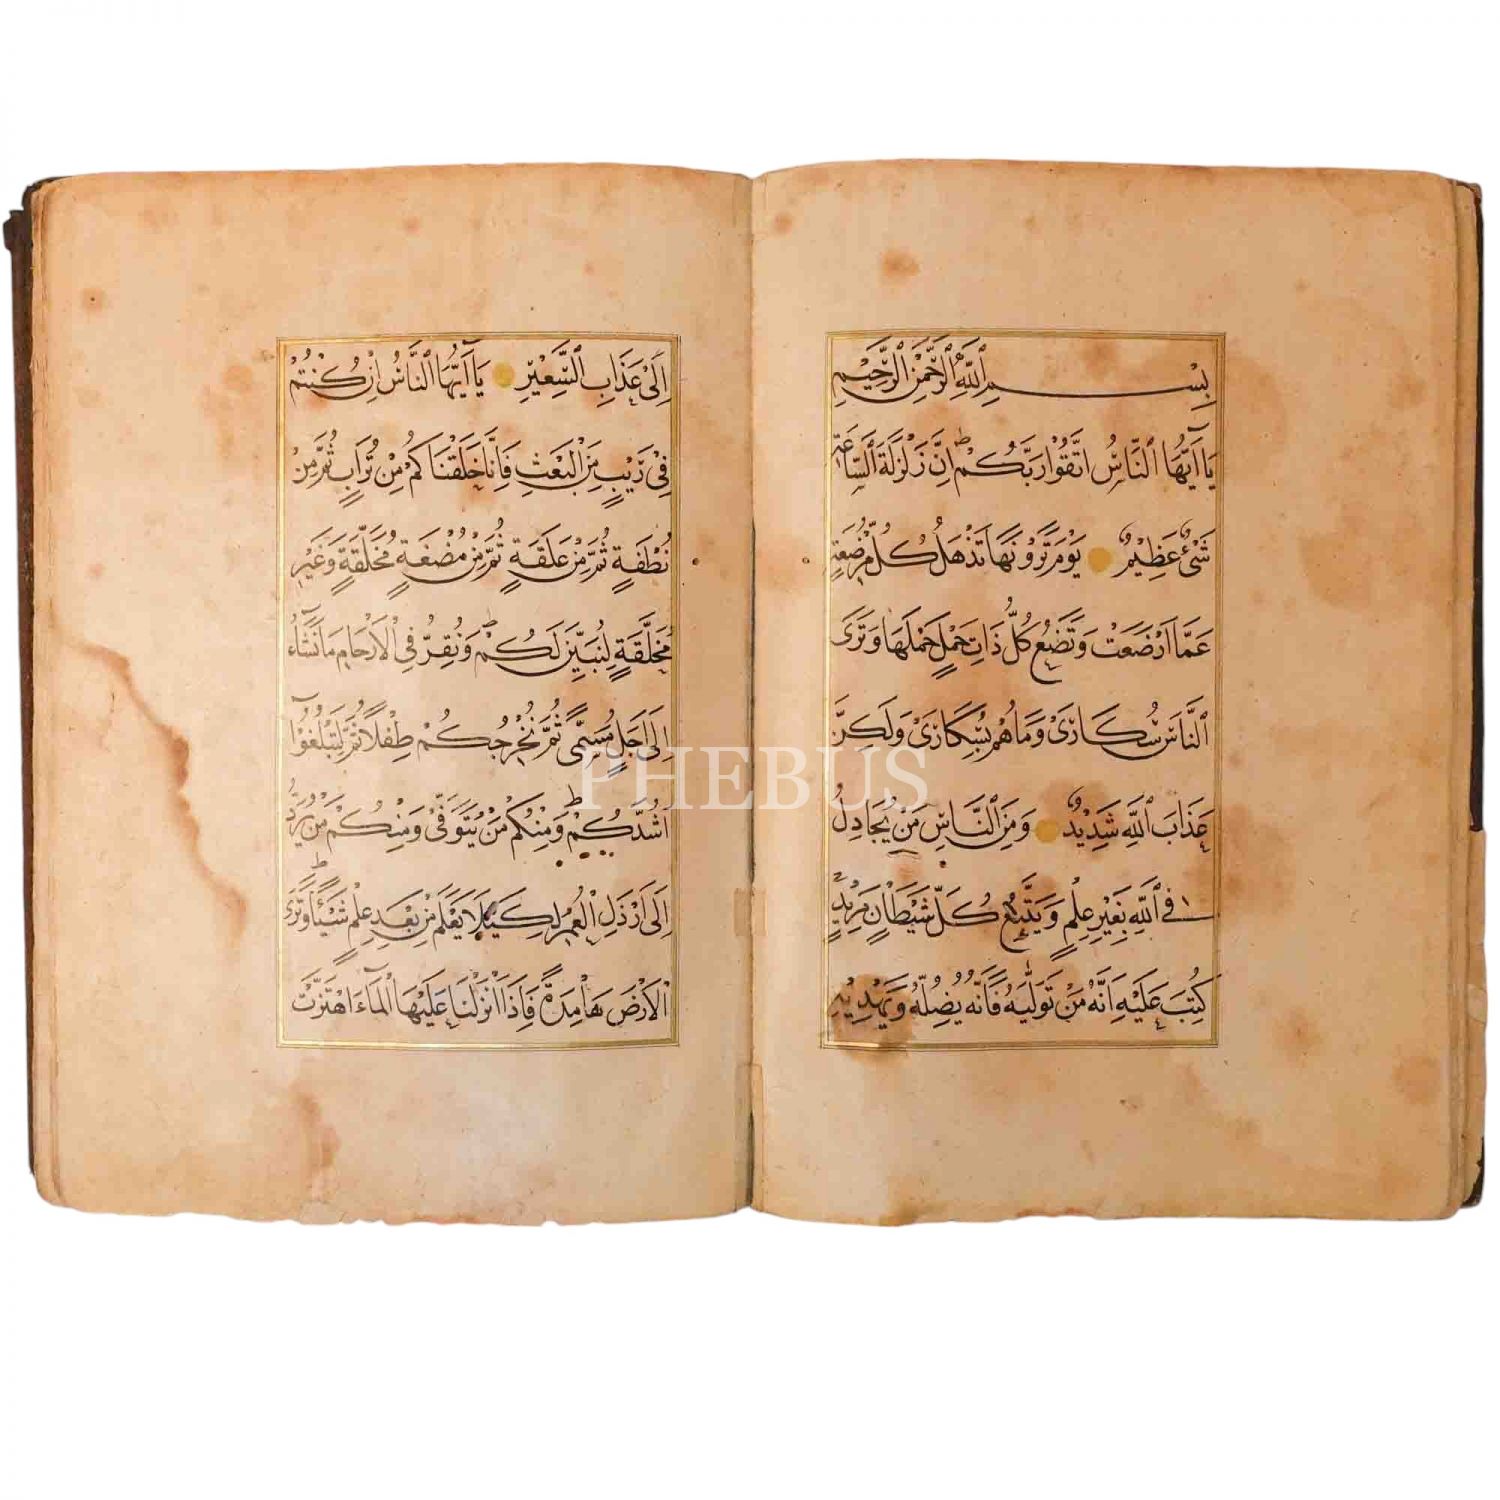 بِسْمِ اللَّهِ الرَّحْمٰنِ الرَّحِيْمِ
يَا اَيُّهَا النَّاسُ اتَّقُوْا رَبَّكُمْ ط اِنَّ زَلْزَلَةَ السَّاعَةِ
شَيْءٌ عَظِيْمٌ يَوْمَ تَرَوْنَهَا تَذْهَلُ كُلُّ مُرْضِعَةٍ
عَمَّا اَرْضَعَتْ وَتَضَعُ كُلُّ ذَاتِ حَمْلٍ حَمْلَهَا وَتَرَى
النَّاسَ سُكَارَىْ وَمَا هُمْ بِسُكَارَىْ وَلَكِنَّ
عَذَابَ اللَّهِ شَدِيْدٌ وَمِنَ النَّاسِ مَنْ يُجَادِلُ
فِي اللَّهِ بِغَيْرِ عِلْمٍ وَيَتَّبِعُ كُلَّ شَيْطَانٍ مَرِيْدٍ
كُتِبَ عَلَيْهِ اَنَّهُ مَنْ تَوَلَّيهُ فَاَنَّهُ يُضِلُّهُ وَيَهْدِيْهِ
اِلَىْ عَذَابِ السَّعِيْرِ يَا اَيُّهَا النَّاسُ اِنْ كُنْتُمْ
فِيْ رَيْبٍ مِنَ الْبَعْثِ فَاِنَّا خَلَقْنَاكُمْ مِنْ تُرَابٍ ثُمَّ مِنْ
نُطْفَةٍ ثُمَّ مِنْ عَلَقَةٍ ثُمَّ مِنْ مُضْغَةٍ مُخَلَّقَةٍ وَغَيْرِ
مُخَلَّقَةٍ لِنُبَيِّنَ لَكُمْ ط وَنُقِرُّ فِي الْاَرْحَامِ مَا نَشَاءُ
اِلَىْ اَجَلٍ مُسَمًّى ثُمَّ نُخْرِجُكُمْ طِفْلًا ثُمَّ لِتَبْلُغُوْا
اَشُدَّكُمْ ط وَمِنْكُمْ مَنْ يُتَوَفَّىْ وَمِنْكُمْ مَنْ يُرَدُّ
اِلَىْ اَرْذَلِ الْعُمُرِ لِكَيْلَا يَعْلَمَ مِنْ بَعْدِ عِلْمٍ شَيْئًا ط وَتَرَى
الْاَرْضَ هَامِدَةً فَاِذَا اَنْزَلْنَا عَلَيْهَا الْمَاءَ اهْتَزَّتْ
PHEBUS